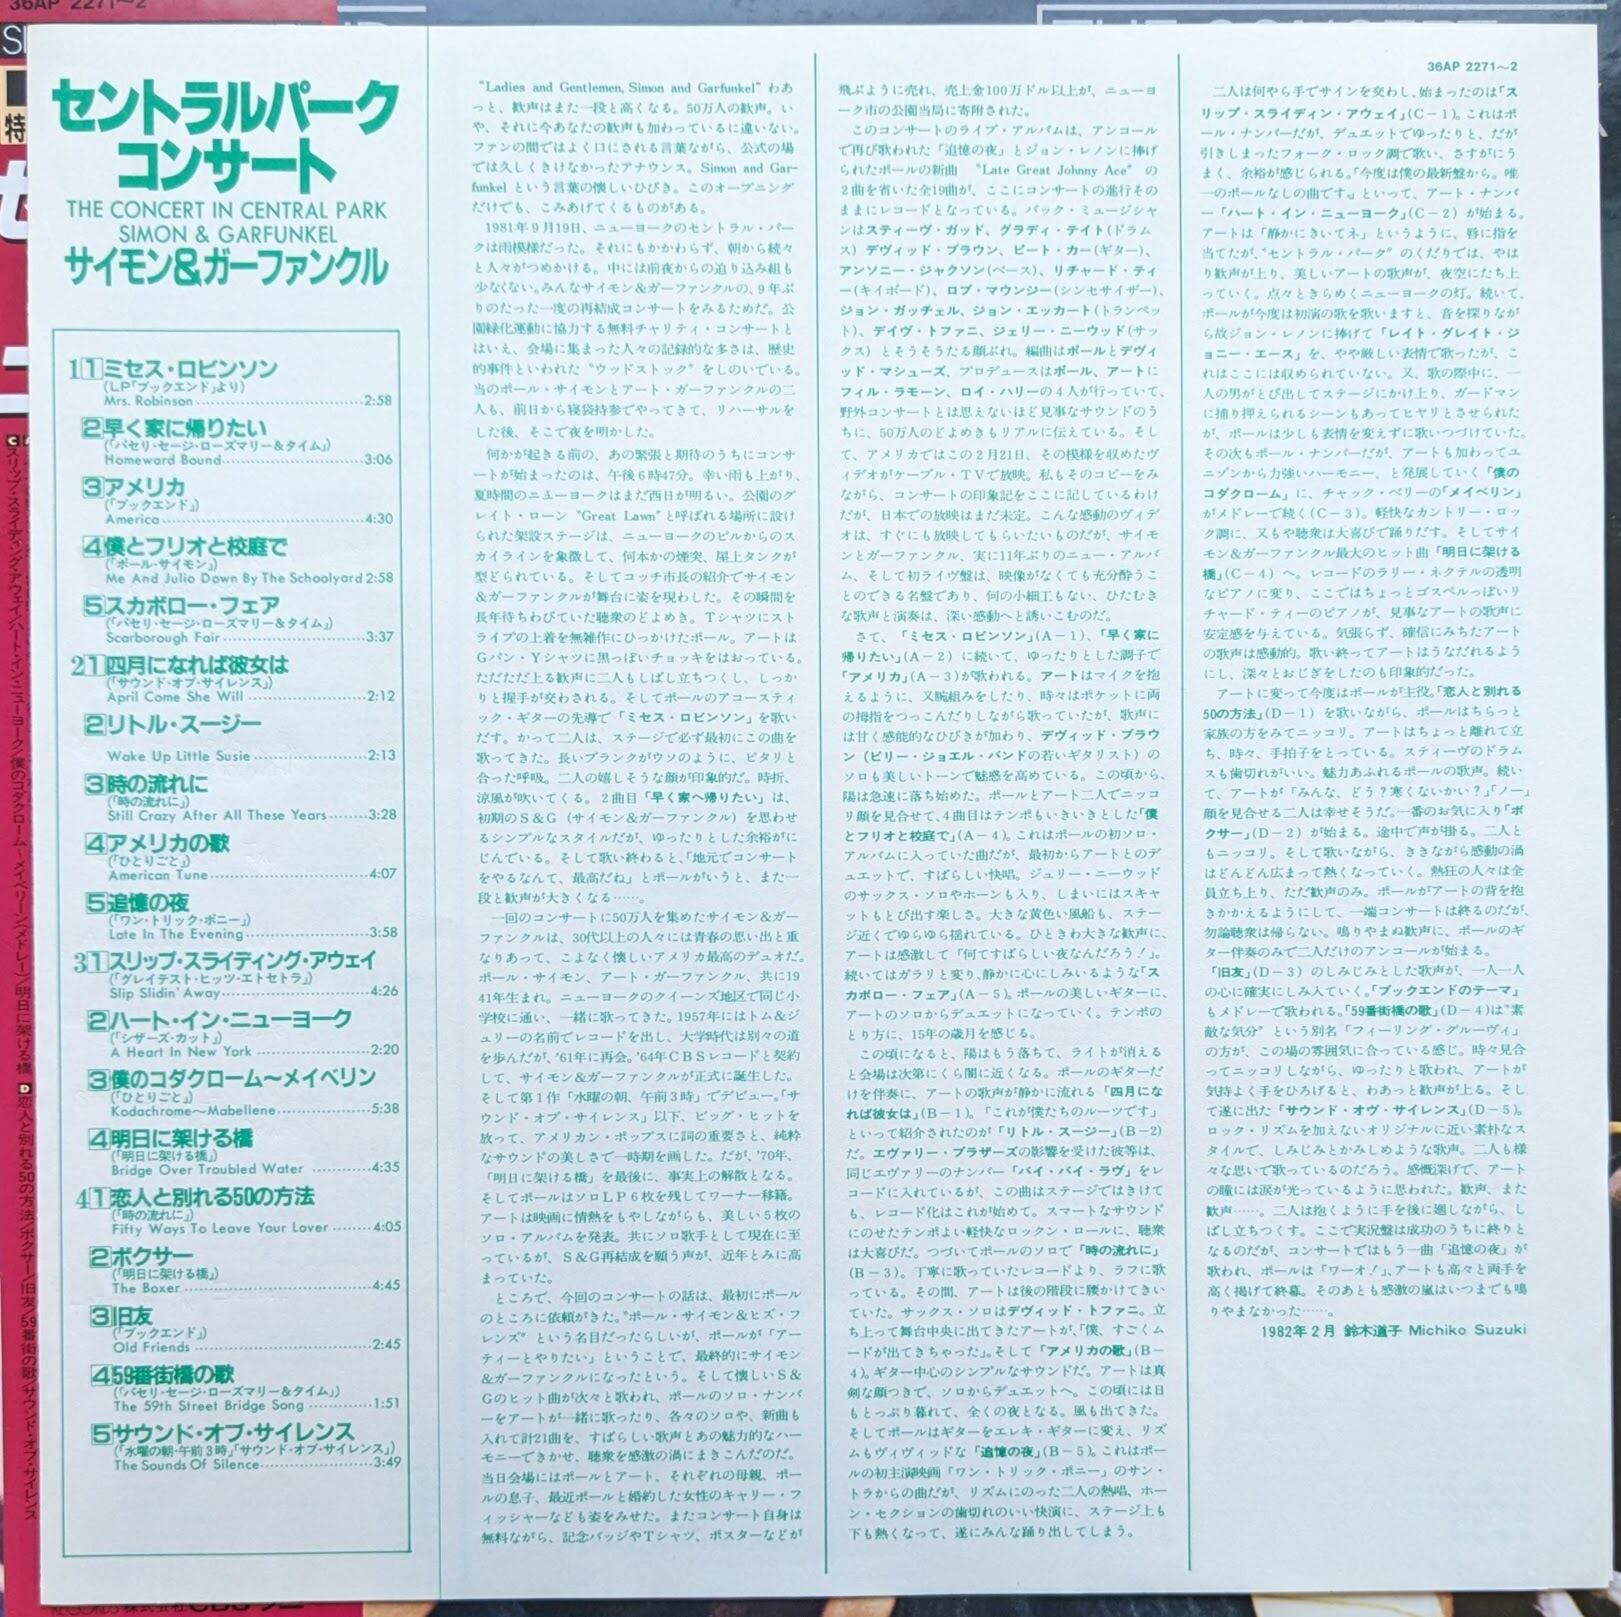 36AP 2271〜2
セントラルパーク
コンサート
THE CONCERT IN CENTRAL PARK
SIMON & GARFUNKEL
サイモン&ガーファンクル
1 1 ミセス・ロビンソン
(LP「ブックエンド」より)
Mrs. Robinson 2:58
2 早く家に帰りたい
(「パセリ・セージ・ローズマリー&タイム」)
Homeward Bound 3:06
3 アメリカ
(「ブックエンド」)
America 4:30
4 僕とフリオと校庭で
(「ポール・サイモン」)
Me And Julio Down By The Schoolyard 2:58
5 スカボロー・フェア
(「パセリ・セージ・ローズマリー&タイム」)
Scarborough Fair 3:37
2 1 四月になれば彼女は
(「サウンド・オブ・サイレンス」)
April Come She Will 2:12
2 リトル・スージー
Wake Up Little Susie 2:13
3 時の流れに
(「時の流れに」)
Still Crazy After All These Years 3:28
4 アメリカの歌
(「ひとりごと」)
American Tune 4:07
5 追憶の夜
(「ワン・トリック・ポニー」)
Late In The Evening 3:58
3 1 スリップ・スライディング・アウェイ
(「グレイテスト・ヒッツ・エトセトラ」)
Slip Slidin' Away 4:26
2 ハート・イン・ニューヨーク
(「シザーズ・カット」)
A Heart In New York 2:20
3 僕のコダクローム〜メイベリン
(「ひとりごと」)
Kodachrome〜Mabellene 5:38
4 明日に架ける橋
(「明日に架ける橋」)
Bridge Over Troubled Water 4:35
4 1 恋人と別れる50の方法
(「時の流れに」)
Fifty Ways To Leave Your Lover 4:05
2 ボクサー
(「明日に架ける橋」)
The Boxer 4:45
3 旧友
(「ブックエンド」)
Old Friends 2:45
4 59番街橋の歌
(「パセリ・セージ・ローズマリー&タイム」)
The 59th Street Bridge Song 1:51
5 サウンド・オブ・サイレンス
(「水曜の朝・午前3時」「サウンド・オブ・サイレンス」)
The Sounds Of Silence 3:49
"Ladies and Gentlemen, Simon and Garfunkel" わあ
っと、歓声はまた一段と高くなる。50万人の歓声。い
や、それに今あなたの歓声も加わっているに違いない。
ファンの間ではよく口にされる言葉ながら、公式の場
では久しくきけなかったアナウンス。Simon and Gar-
funkel という言葉の懐しいひびき。このオープニング
だけでも、こみあげてくるものがある。
1981年9月19日、ニューヨークのセントラル・パー
クは雨模様だった。それにもかかわらず、朝から続々
と人々がつめかける。中には前夜からの泊り込み組も
少なくない。みんなサイモン&ガーファンクルの、9年ぶ
りのたった一度の再結成コンサートをみるためだ。公
園緑化運動に協力する無料チャリティ・コンサートと
はいえ、会場に集まった人々の記録的な多さは、歴史
的事件といわれた"ウッドストック"をしのいでいる。
当のポール・サイモンとアート・ガーファンクルの二
人も、前日から寝袋持参でやってきて、リハーサルを
した後、そこで夜を明かした。
何かが起きる前の、あの緊張と期待のうちにコンサ
ートが始まったのは、午後6時47分。幸い雨も上がり、
夏時間のニューヨークはまだ西日が明るい。公園のグ
レイト・ローン"Great Lawn"と呼ばれる場所に設け
られた架設ステージは、ニューヨークのビルからのス
カイラインを象徴して、何本かの煙突、屋上タンクが
型どられている。そしてコッチ市長の紹介でサイモン
&ガーファンクルが舞台に姿を現わした。その瞬間を
長年待ちわびていた聴衆のどよめき。Tシャツにスト
ライプの上着を無雑作にひっかけたポール。アートは
Gパン・Yシャツに黒っぽいチョッキをはおっている。
ただただ上る歓声に二人もしばし立ちつくし、しっか
りと握手が交わされる。そしてポールのアコースティ
ック・ギターの先導で「ミセス・ロビンソン」を歌い
だす。かって二人は、ステージで必ず最初にこの曲を
歌ってきた。長いブランクがウソのように、ピタリと
合った呼吸。二人の嬉しそうな顔が印象的だ。時折、
涼風が吹いてくる。2曲目「早く家へ帰りたい」は、
初期のS&G(サイモン&ガーファンクル)を思わせ
るシンプルなスタイルだが、ゆったりとした余裕がに
じんでいる。そして歌い終わると、「地元でコンサート
をやるなんて、最高だね」とポールがいうと、また一
段と歓声が大きくなる……。
一回のコンサートに50万人を集めたサイモン&ガー
ファンクルは、30代以上の人々には青春の思い出と重
なりあって、こよなく懐しいアメリカ最高のデュオだ。
ポール・サイモン、アート・ガーファンクル、共に19
41年生まれ。ニューヨークのクイーンズ地区で同じ小
学校に通い、一緒に歌ってきた。1957年にはトム&ジ
ェリーの名前でレコードを出し、大学時代は別々の道
を歩んだが、'61年に再会。'64年CBSレコードと契約
して、サイモン&ガーファンクルが正式に誕生した。
そして第1作「水曜の朝、午前3時」でデビュー。「サ
ウンド・オブ・サイレンス」以下、ビッグ・ヒットを
放って、アメリカン・ポップスに詞の重要さと、純粋
なサウンドの美しさで一時期を画した。だが、'70年、
「明日に架ける橋」を最後に、事実上の解散となる。
そしてポールはソロLP6枚を残してワーナー移籍。
アートは映画に情熱をもやしながらも、美しい5枚の
ソロ・アルバムを発表。共にソロ歌手として現在に至
っているが、S&G再結成を願う声が、近年とみに高
まっていた。
ところで、今回のコンサートの話は、最初にポール
のところに依頼がきた。"ポール・サイモン&ヒズ・フ
レンズ"という名目だったらしいが、ポールが「アー
ティーとやりたい」ということで、最終的にサイモン
&ガーファンクルになったという。そして懐しいS&
Gのヒット曲が次々と歌われ、ポールのソロ・ナンバ
ーをアートが一緒に歌ったり、各々のソロや、新曲も
入れて計21曲を、すばらしい歌声とあの魅力的なハー
モニーできかせ、聴衆を感激の渦にまきこんだのだ。
当日会場にはポールとアート。それぞれの母親、ポー
ルの息子、最近ポールと婚約した女性のキャリー・フ
ィッシャーなども姿をみせた。またコンサート自身は
無料ながら、記念バッジやTシャツ、ポスターなどが
飛ぶように売れ、売上金100万ドル以上が、ニューヨ
ーク市の公園当局に寄附された。
このコンサートのライブ・アルバムは、アンコール
で再び歌われた「追憶の夜」とジョン・レノンに捧げ
られたポールの新曲 "Late Great Johnny Ace" の
2曲を省いた全19曲が、ここにコンサートの進行その
ままにレコードとなっている。バック・ミュージシャ
ンはスティーヴ・ガッド、グラディ・テイト(ドラム
ス)デヴィッド・ブラウン、ピート・カー(ギター)、
アンソニー・ジャクソン(ベース)、リチャード・ティ
ー(キイボード)、ロブ・マウンジー(シンセサイザー)、
ジョン・ガッチェル、ジョン・エッカート(トランペッ
ト)、デイヴ・トファニ、ジェリー・ニーウッド(サッ
クス)とそうそうたる顔ぶれ。編曲はポールとデヴィ
ッド・マシューズ、プロデュースはポール、アートに
フィル・ラモーン、ロイ・ハリーの4人が行っていて、
野外コンサートとは思えないほど見事なサウンドのう
ちに、50万人のどよめきもリアルに伝えている。そし
て、アメリカではこの2月21日、その模様を収めたヴ
ィデオがケーブル・TVで放映。私もそのコピーをみ
ながら、コンサートの印象記をここに記しているわけ
だが、日本での放映はまだ未定。こんな感動のヴィデ
オは、すぐにも放映してもらいたいものだが、サイモ
ンとガーファンクル、実に11年ぶりのニュー・アルバ
ム、そして初ライヴ盤は、映像がなくても充分酔うこ
とのできる名盤であり、何の小細工もない、ひたむき
な歌声と演奏は、深い感動へと誘いこむのだ。
さて、「ミセス・ロビンソン」(A-1)、「早く家に
帰りたい」(A-2)に続いて、ゆったりとした調子で
「アメリカ」(A-3)が歌われる。アートはマイクを抱
えるように、又腕組みをしたり、時々はポケットに両
の拇指をつっこんだりしながら歌っていたが、歌声に
は甘く感能的なひびきが加わり、デヴィッド・ブラウ
ン(ビリー・ジョエル・バンドの若いギタリスト)の
ソロも美しいトーンで魅惑を高めている。この頃から、
陽は急速に落ち始めた。ポールとアート二人でニッコ
リ顔を見合せて、4曲目はテンポもいきいきとした「僕
とフリオと校庭で」(A-4)。これはポールの初ソロ・
アルバムに入っていた曲だが、最初からアートとのデ
ュエットで、すばらしい快唱。ジュリー・ニーウッド
のサックス・ソロやホーンも入り、しまいにはスキャ
ットもとび出す楽しさ。大きな黄色い風船も、ステー
ジ近くでゆらゆら揺れている。ひときわ大きな歓声に、
アートは感激して「何てすばらしい夜なんだろう!」。
続いてはガラリと変り、静かに心にしみいるような「ス
カボロー・フェア」(A-5)。ポールの美しいギターに、
アートのソロからデュエットになっていく。テンポの
とり方に、15年の歳月を感じる。
この頃になると、陽はもう落ちて、ライトが消える
と会場は次第にくら闇に近くなる。ポールのギターだ
けを伴奏に、アートの歌声が静かに流れる「四月にな
れば彼女は」(B-1)。「これが僕たちのルーツです」
といって紹介されたのが「リトル・スージー」(B-2)
だ。エヴァリー・ブラザーズの影響を受けた彼等は、
同じエヴァリーのナンバー「バイ・バイ・ラヴ」をレ
コードに入れているが、この曲はステージではきけて
も、レコード化はこれが始めて。スマートなサウンド
にのせたテンポよい軽快なロックン・ロールに、聴衆
は大喜びだ。つづいてポールのソロで「時の流れに」
(B-3)。丁寧に歌っていたレコードより、ラフに歌
っている。その間、アートは後の階段に腰かけてきい
ていた。サックス・ソロはデヴィッド・トファニ。立
ち上って舞台中央に出てきたアートが、「僕、すごくム
ードが出てきちゃった」。そして「アメリカの歌」(B-
4)。ギター中心のシンプルなサウンドだ。アートは真
剣な顔つきで、ソロからデュエットへ。この頃には日
もとっぷり暮れて、全くの夜となる。風も出てきた。
そしてポールはギターをエレキ・ギターに変え、リズ
ムもヴィヴィッドな「追憶の夜」(B-5)。これはポー
ルの初主演映画「ワン・トリック・ポニー」のサン・
トラからの曲だが、リズムにのった二人の熱唱、ホー
ン・セクションの歯切れのいい快演に、ステージ上も
下も熱くなって、遂にみんな踊り出してしまう。
36AP 2271〜2
二人は何やら手でサインを交わし、始まったのは「ス
リップ・スライディン・アウェイ」(C-1)。これはポ
ール・ナンバーだが、デュエットでゆったりと、だが
引きしまったフォーク・ロック調で歌い、さすがにう
まく、余裕が感じられる。「今度は僕の最新盤から。唯
一のポールなしの曲です。」といって、アート・ナンバ
ー「ハート・イン・ニューヨーク」(C-2)が始まる。
アートは「静かにきいてネ」というように、唇に指を
当てたが、"セントラル・パーク"のくだりでは、やは
り歓声が上り、美しいアートの歌声が、夜空にたち上
っていく。点々ときらめくニューヨークの灯。続いて、
ポールが今度は初演の歌を歌いますと、音を探りなが
ら故ジョン・レノンに捧げて「レイト・グレイト・ジ
ョニー・エース」を、やや厳しい表情で歌ったが、こ
れはここには収められていない。又、歌の際中に、一
人の男がとび出してステージにかけ上り、ガードマン
に捕り押えられるシーンもあってヒヤリとさせられた
が、ポールは少しも表情を変えずに歌いつづけていた。
その次もポール・ナンバーだが、アートも加わってユ
ニゾンから力強いハーモニー、と発展していく「僕の
コダクローム」に、チャック・ベリーの「メイベリン」
がメドレーで続く(C-3)。軽快なカントリー・ロッ
ク調に、又もや聴衆は大喜びで踊りだす。そしてサイ
モン&ガーファンクル最大のヒット曲「明日に架ける
橋」(C-4)へ。レコードのラリー・ネクテルの透明
なピアノに変り、ここではちょっとゴスペルっぽいリ
チャード・ティーのピアノが、見事なアートの歌声に
安定感を与えている。気張らず、確信にみちたアート
の歌声は感動的。歌い終ってアートはうなだれるよう
にし、深々とおじぎをしたのも印象的だった。
アートに変って今度はポールが主役。「恋人と別れる
50の方法」(D-1)を歌いながら、ポールはちらっと
家族の方をみてニッコリ。アートはちょっと離れて立
ち、時々、手拍子をとっている。スティーヴのドラム
スも歯切れがいい。魅力あふれるポールの歌声。続い
て、アートが「みんな、どう?寒くないかい?」「ノー」
顔を見合せる二人は幸せそうだ。一番のお気に入り「ボ
クサー」(D-2)が始まる。途中で声が掛る。二人と
もニッコリ。そして歌いながら、ききながら感動の渦
はどんどん広まって熱くなっていく。熱狂の人々は全
員立ち上り、ただ歓声のみ。ポールがアートの背を抱
きかかえるようにして、一端コンサートは終るのだが、
勿論聴衆は帰らない。鳴りやまぬ歓声に、ポールのギ
ター伴奏のみで二人だけのアンコールが始まる。
「旧友」(D-3)のしみじみとした歌声が、一人一人
の心に確実にしみ入ていく。「ブックエンドのテーマ」
もメドレーで歌われる。「59番街橋の歌」(D-4)は"素
敵な気分"という別名「フィーリング・グルーヴィ」
の方が、この場の雰囲気に合っている感じ。時々見合
ってニッコリしながら、ゆったりと歌われ、アートが
気持よく手をひろげると、わあっと歓声が上る。そし
て遂に出た「サウンド・オヴ・サイレンス」(D-5)。
ロック・リズムを加えないオリジナルに近い素朴なス
タイルで、しみじみとかみしめような歌声。二人も様
々な思いで歌っているのだろう。感慨深げで、アート
の瞳には涙が光っているように思われた。歓声、また
歓声……。二人は抱くように手を後に廻しながら、し
ばし立ちつくす。ここで実況盤は成功のうちに終りと
なるのだが、コンサートではもう一曲「追憶の夜」が
歌われ、ポールは「ワーオ!」、アートも高々と両手を
高く掲げて終幕。そのあとも感激の嵐はいつまでも鳴
りやまなかった……。
1982年2月 鈴木道子 Michiko Suzuki